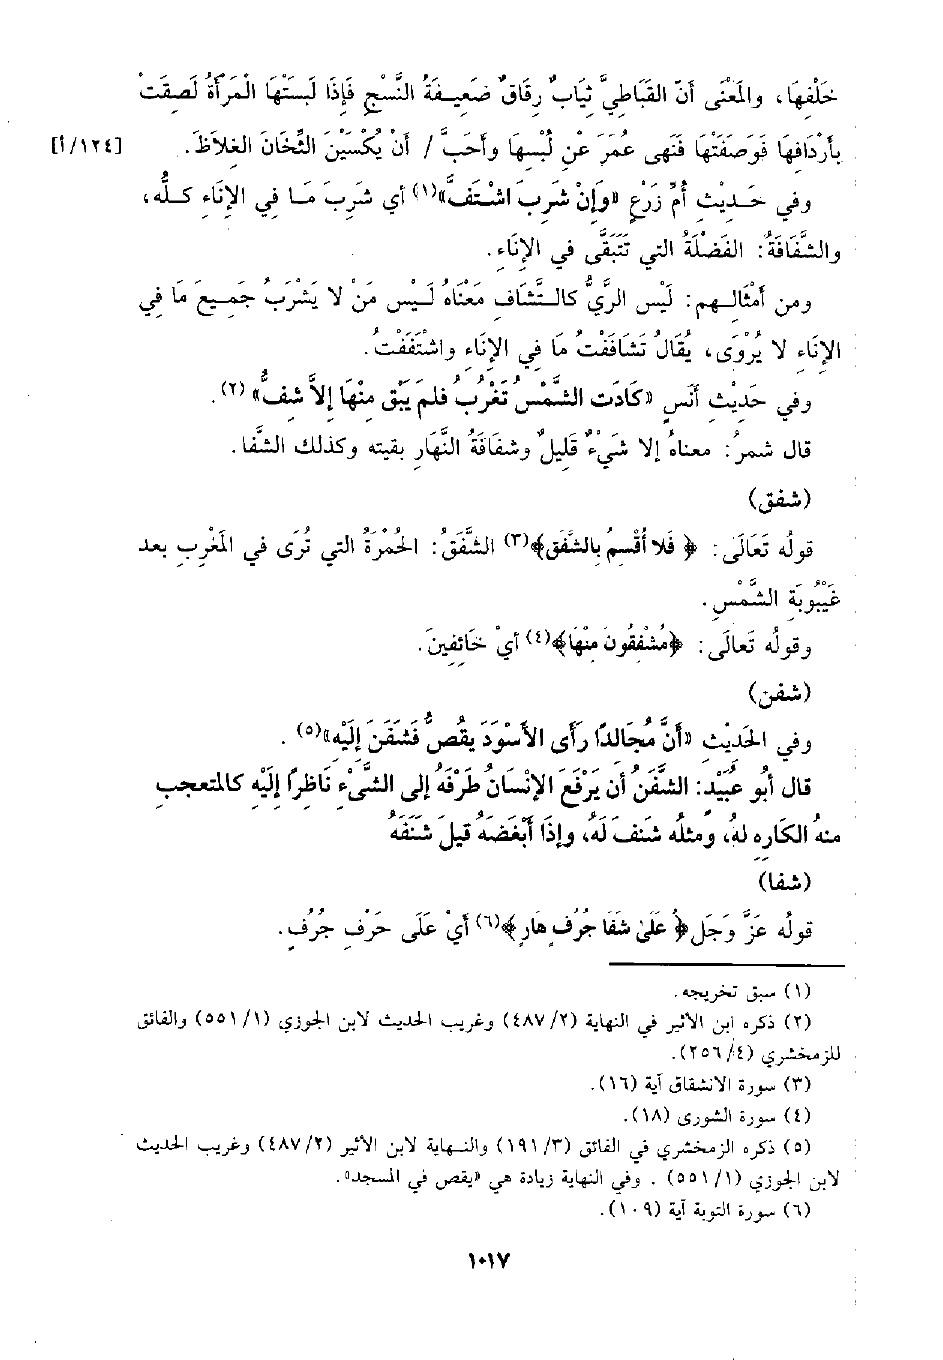 خَلْفِهَا، والمَعْنَى أَنّ القَبَاطِيَّ ثِيَابٌ رِقَاقٌ ضَعِيفَةُ النَّسْجِ فَإِذَا لَبِسَتْهَا المَرْأَةُ لَصِقَتْ
بِأَرْدَافِهَا فَوَصَفَتْهَا فَنَهى عُمَرَ عَنْ لُبْسِها وأحَبَّ / أَنْ يُكْسَيْنَ الثِّخَانَ الغِلاَظَ. [١٢٤/أ]
وفي حَدِيْثِ أُمِّ زَرْعٍ «وَإِنْ شَرِبَ اشْتَفَّ»(١) أي شَرِبَ مَا فِي الإِنَاءِ كلَّه،
والشُّفَافَةُ: الفَضْلَةُ التي تَتَبَقَّى في الإِنَاءِ.
ومن أَمْثَالِهم: لَيْس الرِّيُّ كالتَّشَاف مَعْنَاهُ لَيْس مَنْ لا يَشْرَبُ جَمِيعَ مَا في
الإِنَاءِ لا يُرْوَى، يُقَالُ تَشَافَفْت مَا فِي الإِنَاءِ واشْتَفَفْتُ.
وفي حَدِيْثِ أَنَسٍ «كَادَت الشَّمْسُ تَغْرُبُ فلم يَبْق مِنْهَا إلاَّ شِفٌّ»(٢).
قال شمرُ: معناهُ إلا شَيْءٌ قَلِيلٌ وشفَافَةُ النَّهَارِ بقيته وكذلك الشَّفَا.
(شفق)
قولُه تَعَالَى: ﴿ فَلا أُقْسِمُ بِالشَّفَقِ﴾(٣) الشَّفَقُ: الحُمْرَةُ التي تُرَى في المَغْرِبِ بعد
غَيْبُوبَةِ الشَّمْسِ.
وقولُه تَعالَى: ﴿مُشْفِقُونَ مِنْهَا﴾(٤) أيْ خَائِفِينَ.
(شفن)
وفي الحَدِيْثِ «أَنَّ مُجَالِدًا رَأَى الأَسْوَدَ يقُصُّ فَشَفَنَ إِلَيْه»(٥).
قال أَبُو عبَيْدٍ: الشَّفَنُ أن يَرْفَعَ الإِنْسَانُ طَرْفَهُ إلى الشَّيْءِ نَاظِرًا إِلَيْهِ كالمتعجبِ
منهُ الكَارِهِ لهُ، ومِثلُه شَنَفَ لَهُ، وإِذَا أَبْغَضَهُ قيلَ شَنَفَهُ
(شفا)
قولُه عَزَّ وَجَل ﴿ عَلَىٰ شَفَا جُرُفٍ هَارٍ ﴾(٦) أَيْ عَلَى حَرْفِ جُرُفٍ.
(١) سبق تخريجه.
(٢) ذكره ابن الأثير في النهاية (٤٨٧/٢) وغريب الحديث لابن الجوزي (٥٥١/١) والفائق
للزمخشري (٢٥٦/٤).
(٣) سورة الانشقاق آية (١٦).
(٤) سورة الشورى (١٨).
(٥) ذكره الزمخشري في الفائق (١٩١/٣) والنهاية لابن الأثير (٤٨٧/٢) وغريب الحديث
لابن الجوزي (٥٥١/١) . وفي النهاية زيادة هي «يقص في المسجد».
(٦) سورة التوبة آية (١٠٩).
١٠١٧